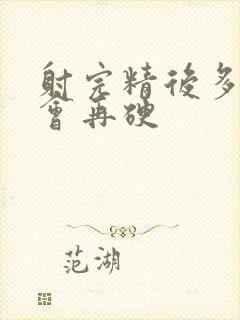 射完精後多
會再硬
范湖